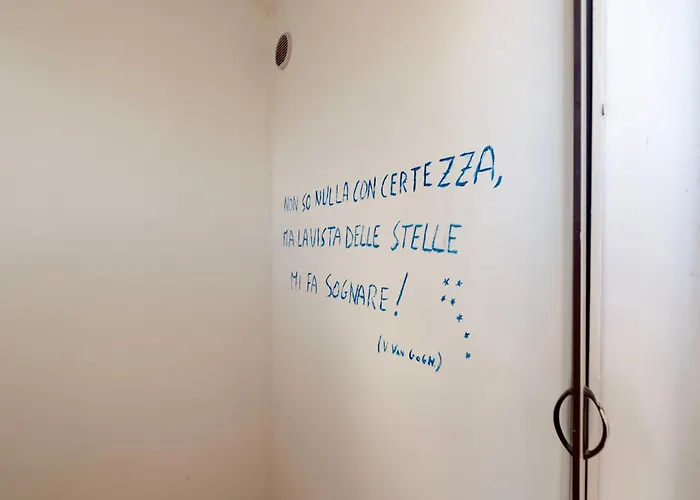 NON SO NULLA CON CERTEZZA,
MA LA VISTA DELLE STELLE
MI FA SOGNARE!
(V. VAN GOGH.)